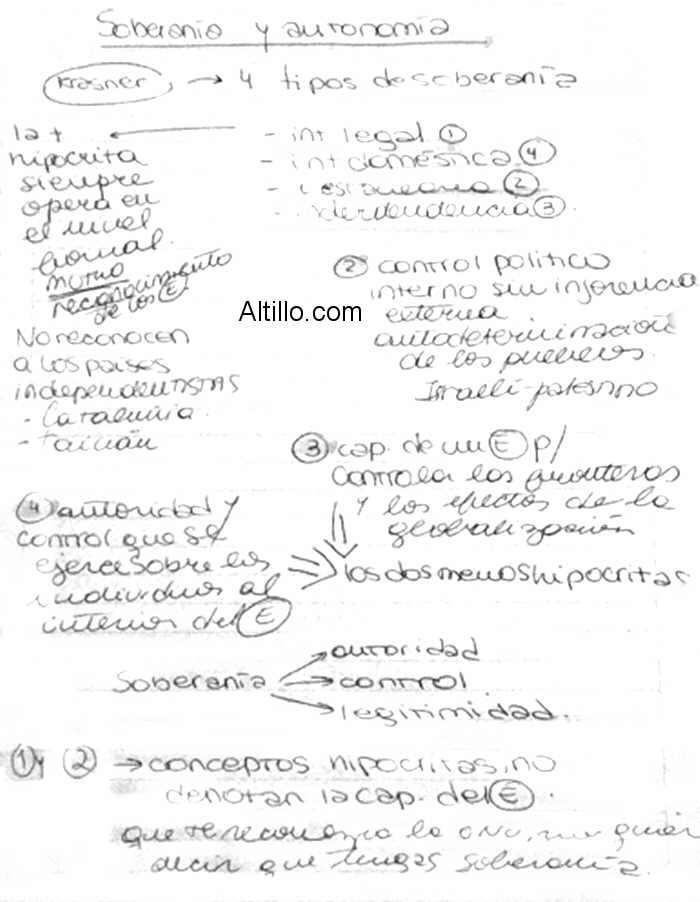 Soberania y autonomía
Krasner, → 4 tipos de soberanía
- int legal ①
- int doméstica ④
- ②
- interdependencia ③
la +
hipocrita
siempre
opera en
el nivel
formal.
mutuo
reconocimiento
de los Ⓔ
No reconocen
a los paises
independentistas
- Catalunia
- Taiuán
② control politico
interno sin injerencia
externa
autodeterminación
de los pueblos.
Israeli-palestino
Altillo.com
③ cap. de un Ⓔ p/
controlar las fronteras
y los efectos de la
globalización
④ autoridad y
control que se
ejerce sobre los
individuos al
interior del Ⓔ
los dos menos hipocritas
Soberanía
autoridad
control
legitimidad.
① y ② → conceptos hipocritas, no
denotan la cap. del Ⓔ.
que te reconozca la ONU, no quier
decir que tengas soberanía.